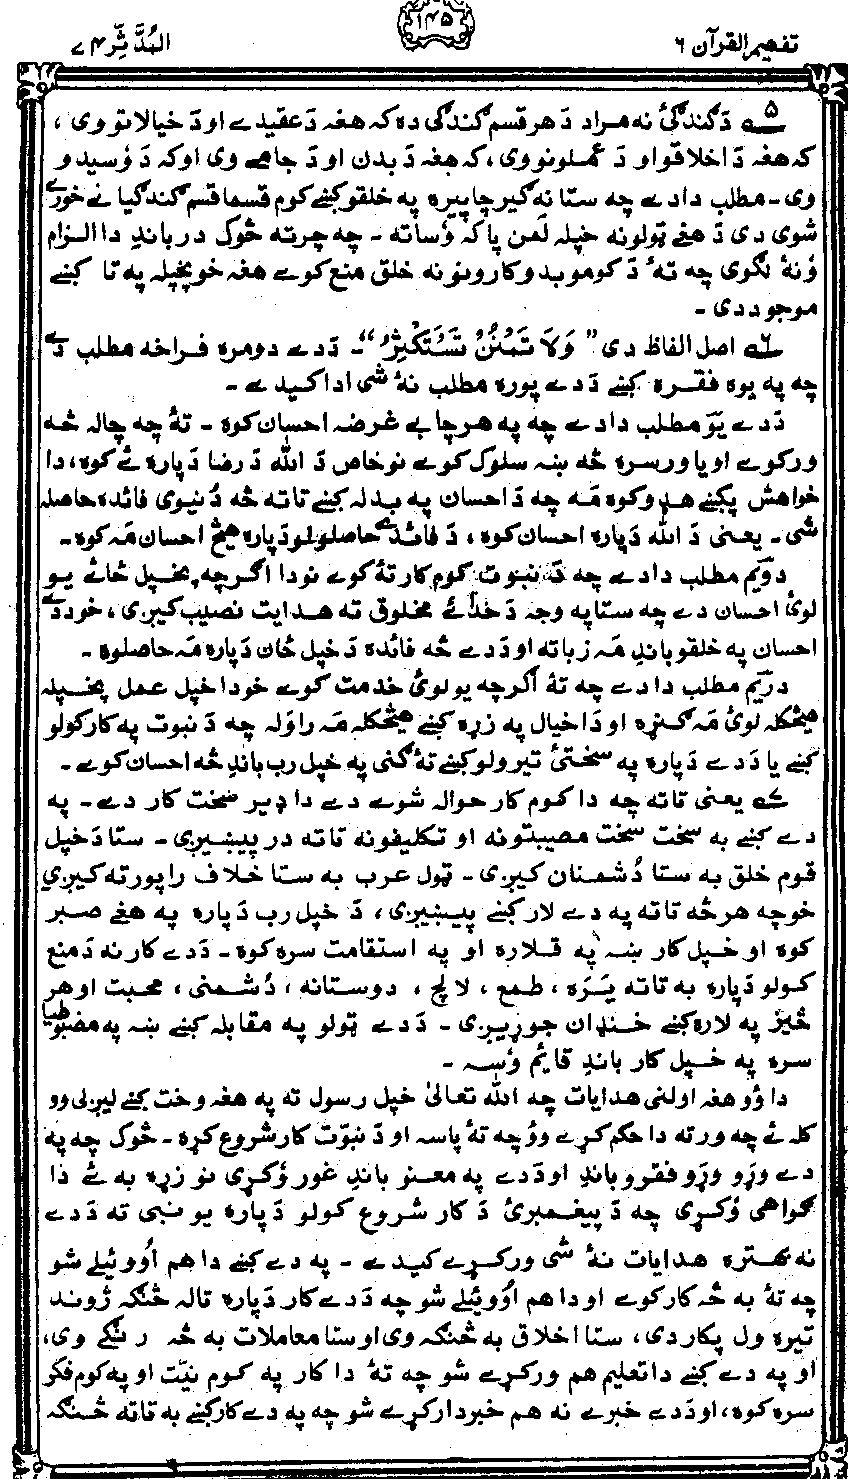 تفهيم القرآن ۶
۱۴۵
المُدَّثِّر ۷۴
۵ دَ ګندګئ نه مراد دَ هر قسم ګندګی ده که هغه دَ عقیدے او دَ خیالاتو وی ،
که هغه دَ اخلاقو او دَ عملونو وی ، که هغه دَ بدن او دَ جامے وی او که دَ وٗسیدو
وی ۔ مطلب دادے چه ستا نه ګیر چاپیره په خلقو کښے کوم قسما قسم ګندګیانے خورے
شوی دی دَ هغے ټولو نه خپله لمن پاکه وٗساته ۔ چه چرته څوک درباندِ دا الزام
وٗنهٔ لګوی چه تهٔ دَ کومو بدو کارونو نه خلق منع کوے هغه خو پخپله په تا کښے
موجود دی ۔
۶ اصل الفاظ دی ” وَلَا تَمْنُنْ تَسْتَكْثِرُ “ ۔ دَدے دومره فراخه مطلب دے
چه په یوه فقره کښے دَدے پوره مطلب نهٔ شی ادا کیدے ۔
دَدے یوٓ مطلب دادے چه په هر چا بے غرضه احسان کوه ۔ تهٔ چه چاله څه
ورکوے او یا ورسره څه ښه سلوک کوے نو خاص دَ اللّٰه دَ رضا دَپاره ئے کوه ، دا
خواهش پکښے هډو کوه مه چه دَ احسان په بدله کښے تاته څه دُنیوی فائده حاصله
شی ۔ یعنی دَ اللّٰه دَپاره احسان کوه ، دَ فائدے حاصلولو دَپاره هیڅ احسان مه کوه ۔
دوٓیم مطلب دادے چه دَ نبوت کوم کار تهٔ کوے نو دا اګرچه پخپل ځائے یو
لوئ احسان دے چه ستا په وجه دَ خدائے مخلوق ته هدایت نصیب کیږی ، خو دَدے
احسان په خلقو باندِ مه زباته او دَدے څه فائده دَ خپل ځان دَپاره مه حاصلوه ۔
درٓیم مطلب دادے چه تهٔ اګرچه یو لوئ خدمت کوے خو دا خپل عمل پخپله
هیڅکله لوئ مه ګنړه او دَا خیال په زړه کښے هیڅکله مه راوَله چه دَ نبوت په کار کولو
کښے یا دَدے دَپاره په سختئ تیرولو کښے تهٔ ګنی په خپل رب باندِ څه احسان کوے ۔
۷ یعنی تاته چه دا کوم کار حواله شوے دے دا ډیر سخت کار دے ۔ په
دے کښے به سخت سخت مصیبتونه او تکلیفونه تاته در پیښیږی ۔ ستا دَ خپل
قوم خلق به ستا دُشمنان کیږی ۔ ټول عرب به ستا خلاف راپورته کیږی
خو چه هر څه تاته په دے لار کښے پیښیږی ، دَ خپل رب دَپاره په هغے صبر
کوه او خپل کار ښه په قلاره او په استقامت سره کوه ۔ دَدے کار نه دَ منع
کولو دَپاره به تاته یَرَه ، طمع ، لالچ ، دوستانه ، دُشمنی ، محبت او هر
څیز په لاره کښے خنډان جوړیږی ۔ دَدے ټولو په مقابله کښے ښه په مضبوطیا
سره په خپل کار باندِ قایٔم وٗسه ۔
دا وٗو هغه اولنی هدایات چه اللّٰه تعالیٰ خپل رسول ته په هغه وخت کښے لیږلی وو
کله ئے چه ورته دا حکم کړے وؤ چه تهٔ پاسه او دَ نبوّت کار شروع کړه ۔ څوک چه په
دے وړو وړو فقرو باندِ او دَدے په معنو باندِ غور وٗکړی نو زړه به ئے دا
ګواهی وٗکړی چه دَ پیغمبرئ دَ کار شروع کولو دَپاره یو نبی ته دَدے
نه بهتره هدایات نهٔ شی ورکړے کیدے ۔ په دے کښے دا هم اُووئیلے شو
چه تهٔ به څه کار کوے او دا هم اُووئیلے شو چه دَدے کار دَپاره تاله څنګه ژوند
تیره ول پکار دی ، ستا اخلاق به څنګه وی او ستا معاملات به څه رنګے وی ،
او په دے کښے دا تعلیم هم ورکړے شو چه تهٔ دا کار په کوم نیّت او په کوم فکر
سره کوه ، او دَدے خبرے نه هم خبردار کړے شو چه په دے کار کښے به تاته څنګه